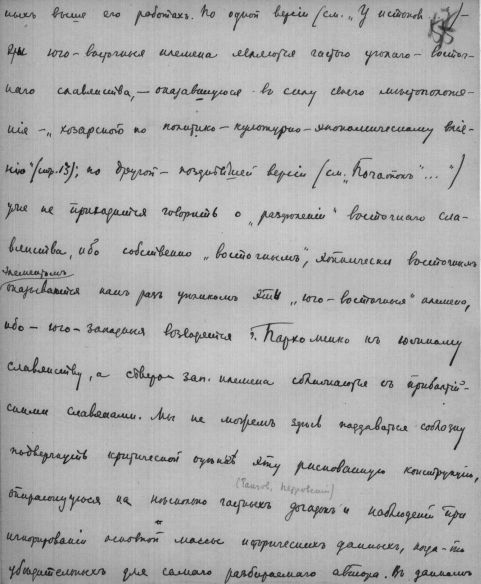 ныхъ выше его работахъ. По одной версіи (см. „У истоков
юго-восточныя племена являются частью
славянства, – оказавшуюся въ силу своего мѣстоположе-
нія – „хозарской по политико-культурно-экономическому
(стр. 13); по другой – позднѣйшей версіи (см. „Початок"...")
уже не приходится говорить о „разложеніи" восточнаго сла-
вянства, ибо собственно „восточнымъ", этнически восточнымъ
элементомъ
оказываются
разъ „юго-восточныя" племена,
ибо – юго-западныя возводятся г. Пархоменко къ южному
славянству, а сѣверо-зап. племена сближаются съ прибалтій-
скими славянами. Мы не можемъ здѣсь поддаваться соблазну
подвергнуть критической оцѣнкѣ эту рискованную конструкцію,
(Багалѣй, Петровскій)
опирающуюся на нѣсколько частныхъ догадокъ и наблюденій при
игнорированіи основной массы историческихъ данныхъ, когда-то
убѣдительныхъ для самаго разбираемаго автора. Въ данномъ